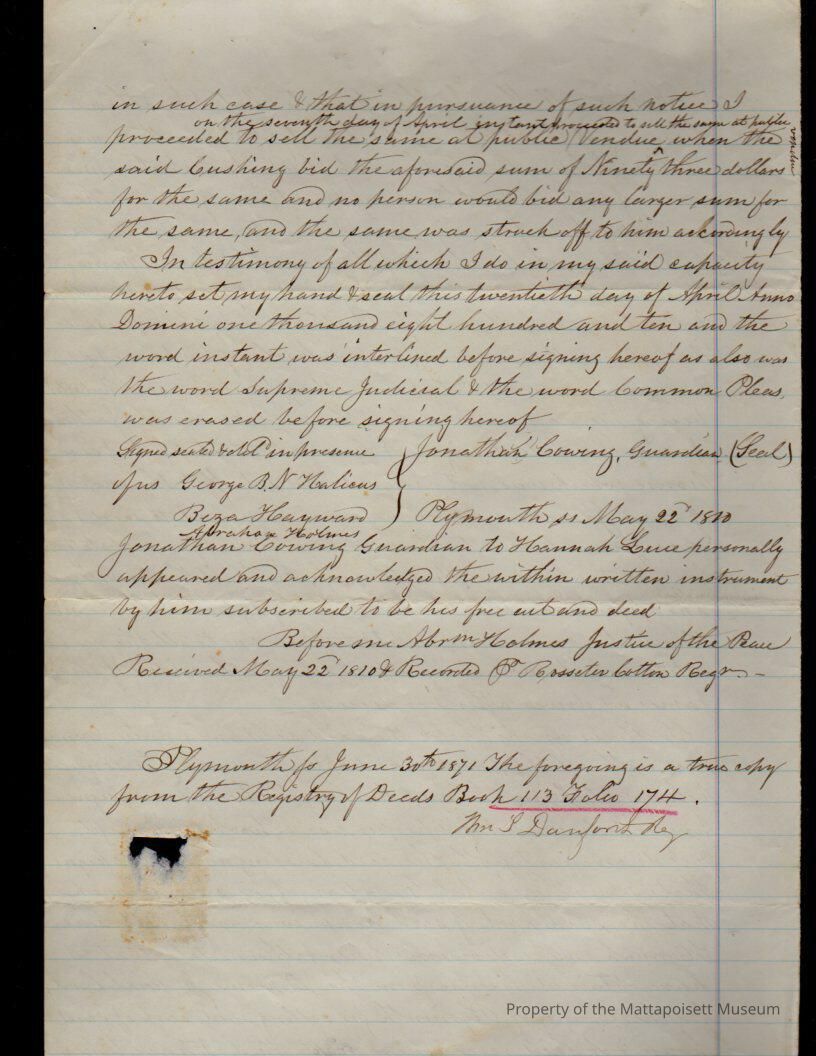 in such case & that in pursuance of such notice I
on the seventh day of April instant proceeded to sell the same at public
vendue
proceeded to sell the same at public Vendue, when the
said Cushing bid the aforesaid sum of Ninety three dollars
for the same and no person would bid any larger sum for
the same, and the same was struck off to him accordingly
In testimony of all which I do in my said capacity
hereto set my hand & seal this twentieth day of April Anno
Domini one thousand eight hundred and ten and the
word instant was interlined before signing hereof as also was
the word Supreme Judicial & the word Common Pleas,
was erased before signing hereof
Signed sealed & deld in presence } Jonathan Cowing, Guardian (Seal)
of us George B. N
Beza Hayward Plymouth ss May 22d 1810
Abraham Holmes
Jonathan Cowing Guardian to Hannah Luce personally
appeared and acknowledged the within written instrument
by him subscribed to be his free act and deed
Before me Abrm Holmes Justice of the Peace
Received May 22d 1810 & Recorded Pr Rosseter Cotton Regr. -
Plymouth ss June 30th 1871 The foregoing is a true copy
from the Registry of Deeds Book 113 Folio 174.
Wm S Danforth Reg
Property of the Mattapoisett Museum